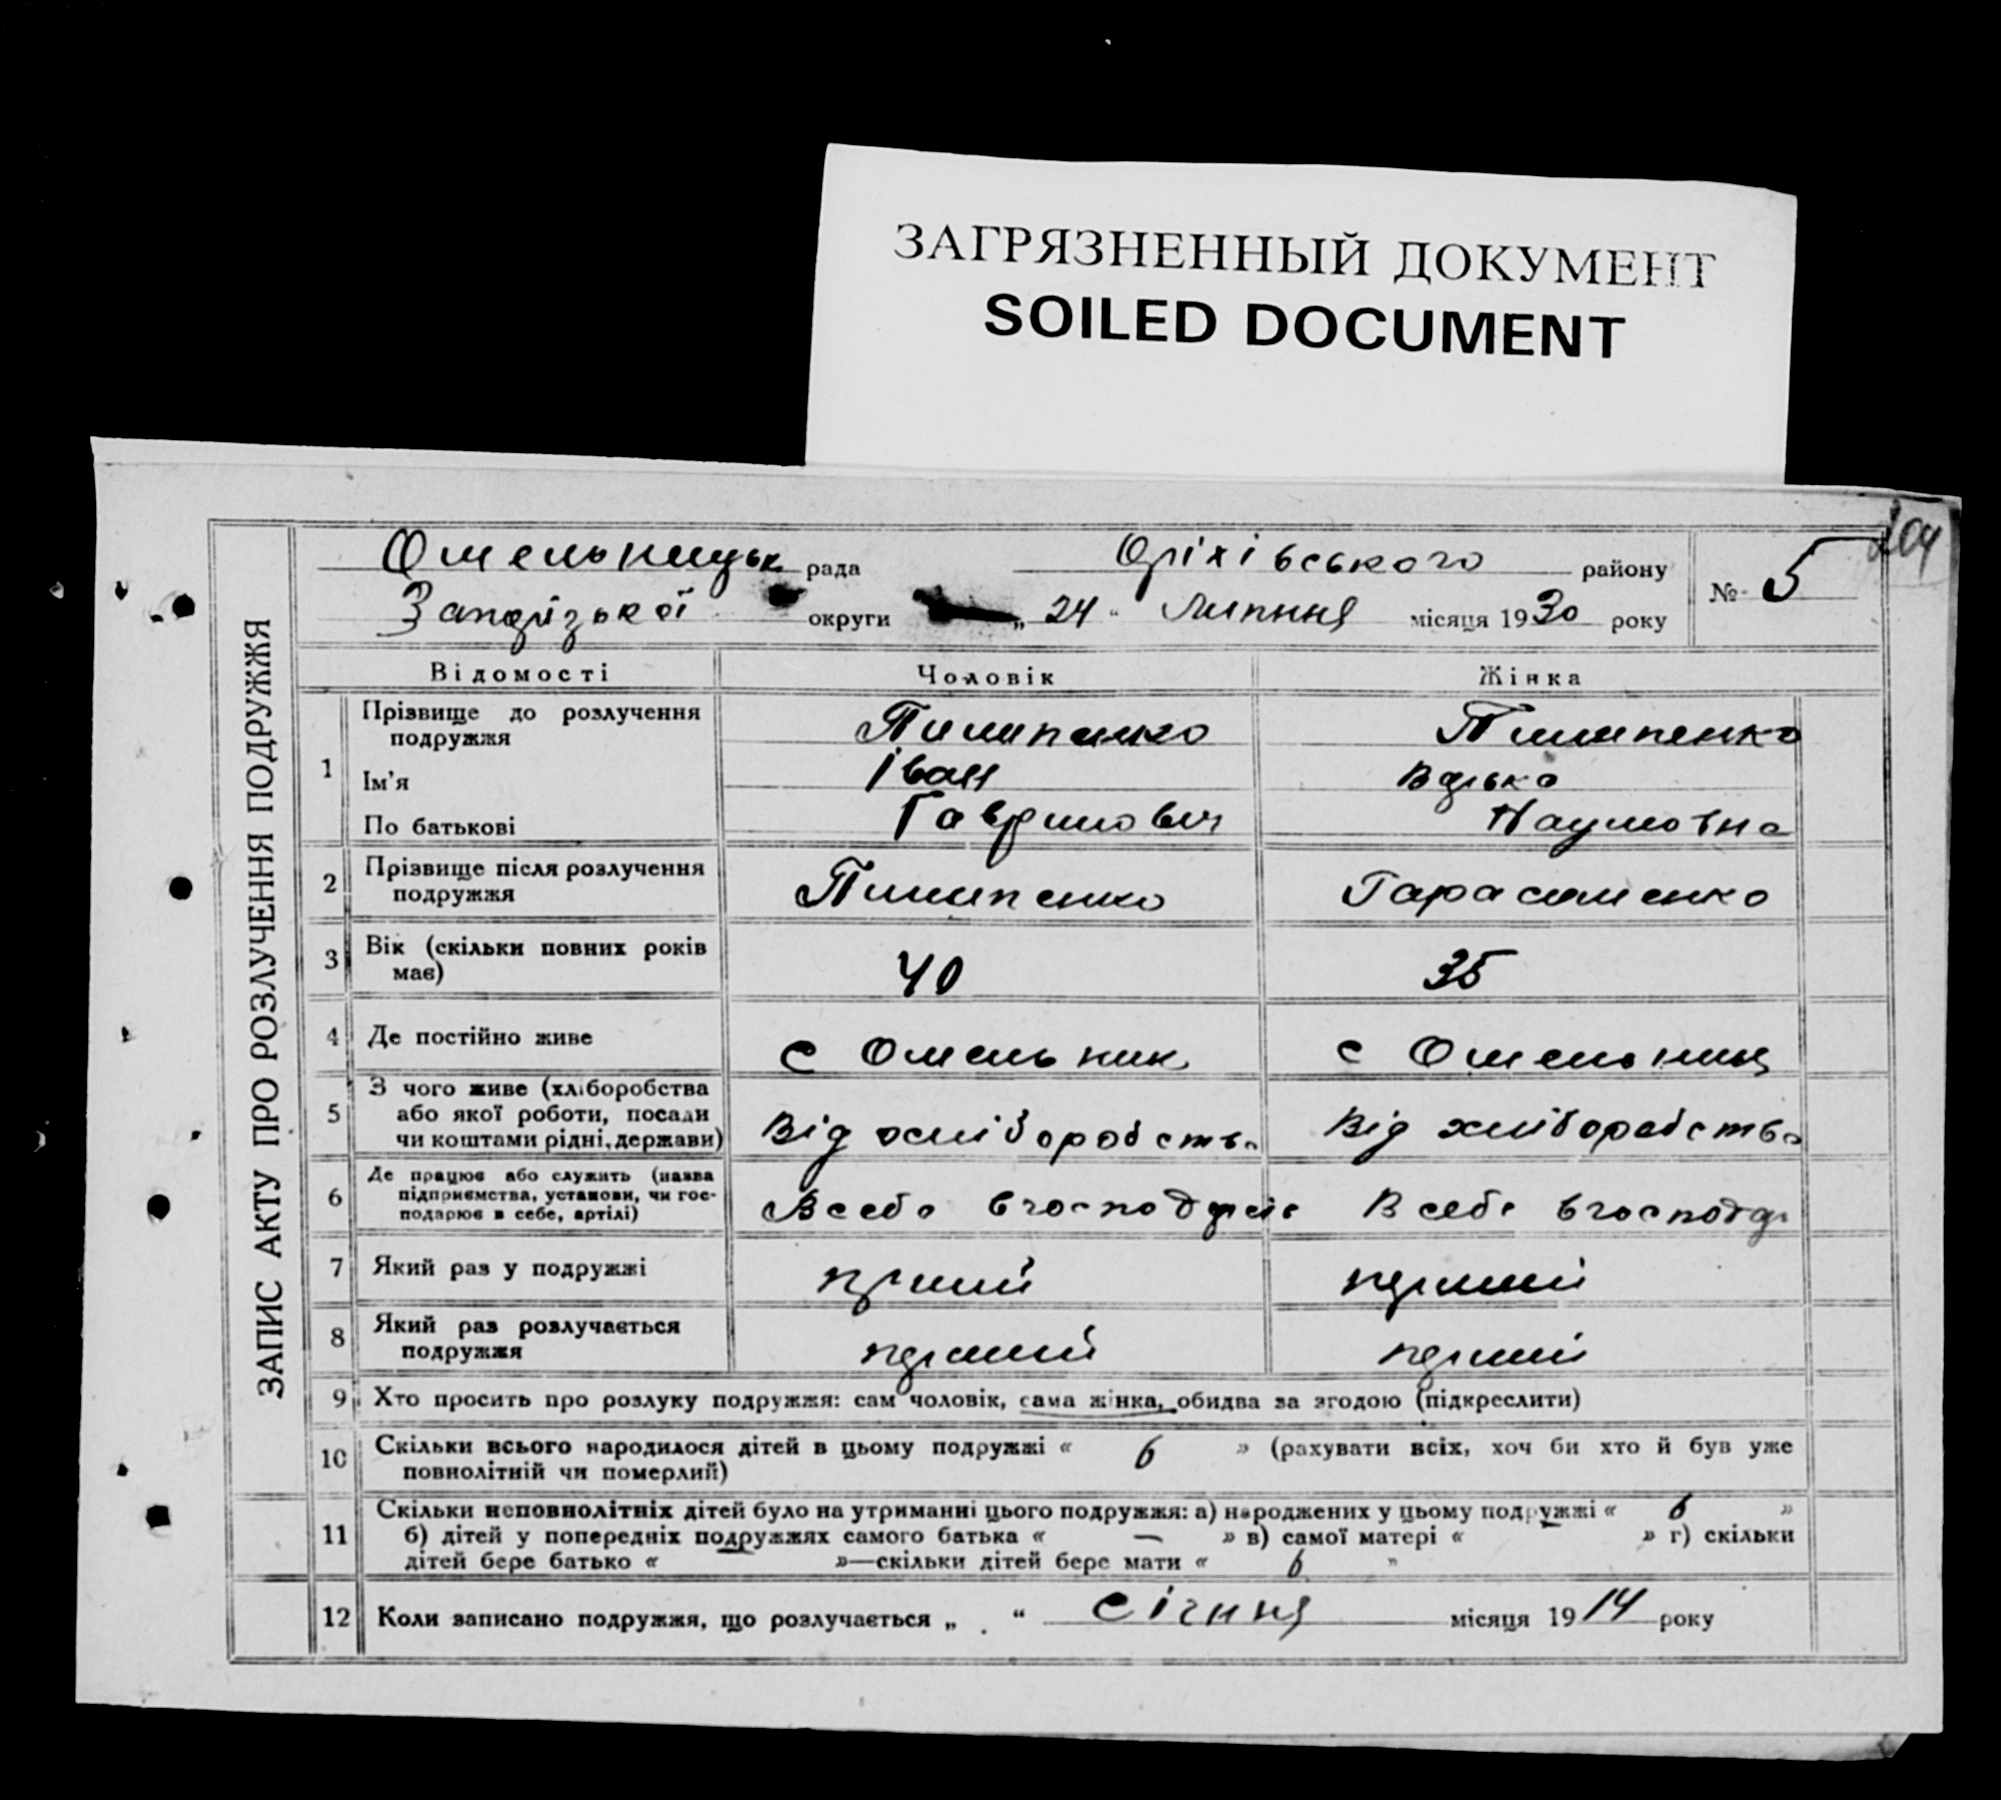 ЗАГРЯЗНЕННЫЙ ДОКУМЕНТ
SOILED DOCUMENT
204
ЗАПИС АКТУ ПРО РОЗЛУЧЕННЯ ПОДРУЖЖЯ
Омельницьк рада Оріхівського району № 5
округи „ 24 “ Липння місяця 1930 року
Відомості Чоловік Жінка
1 Прізвище до розлучення подружжя Пилипенко Пилипенко
Ім'я Іван
По батькові Гаврилович Наумовна
2 Прізвище після розлучення подружжя Пилипенко Гарасименко
3 Вік (скільки повних років має) 40 35
4 Де постійно живе с Омельник с Омельник
5 З чого живе (хліборобства або якої роботи, посади чи коштами рідні, держави) Від хліборобства Від хліборобства
6 Де працює або служить (назва підприємства, установи, чи господарює в себе, артілі) В себе в В себе в
7 Який раз у подружжі перший
8 Який раз розлучається подружжя перший перший
9 Хто просить про розлуку подружжя: сам чоловік, сама жінка, обидва за згодою (підкреслити)
10 Скільки всього народилося дітей в цьому подружжі « 6 » (рахувати всіх, хоч би хто й був уже
повнолітній чи померлий)
11 Скільки неповнолітніх дітей було на утриманні цього подружжя: а) народжених у цьому подружжі « 6 »
б) дітей у попередніх подружжях самого батька « — » в) самої матері « » г) скільки
дітей бере батько « »—скільки дітей бере мати « 6 »
12 Коли записано подружжя, що розлучається „ “ Січння місяця 1914 року